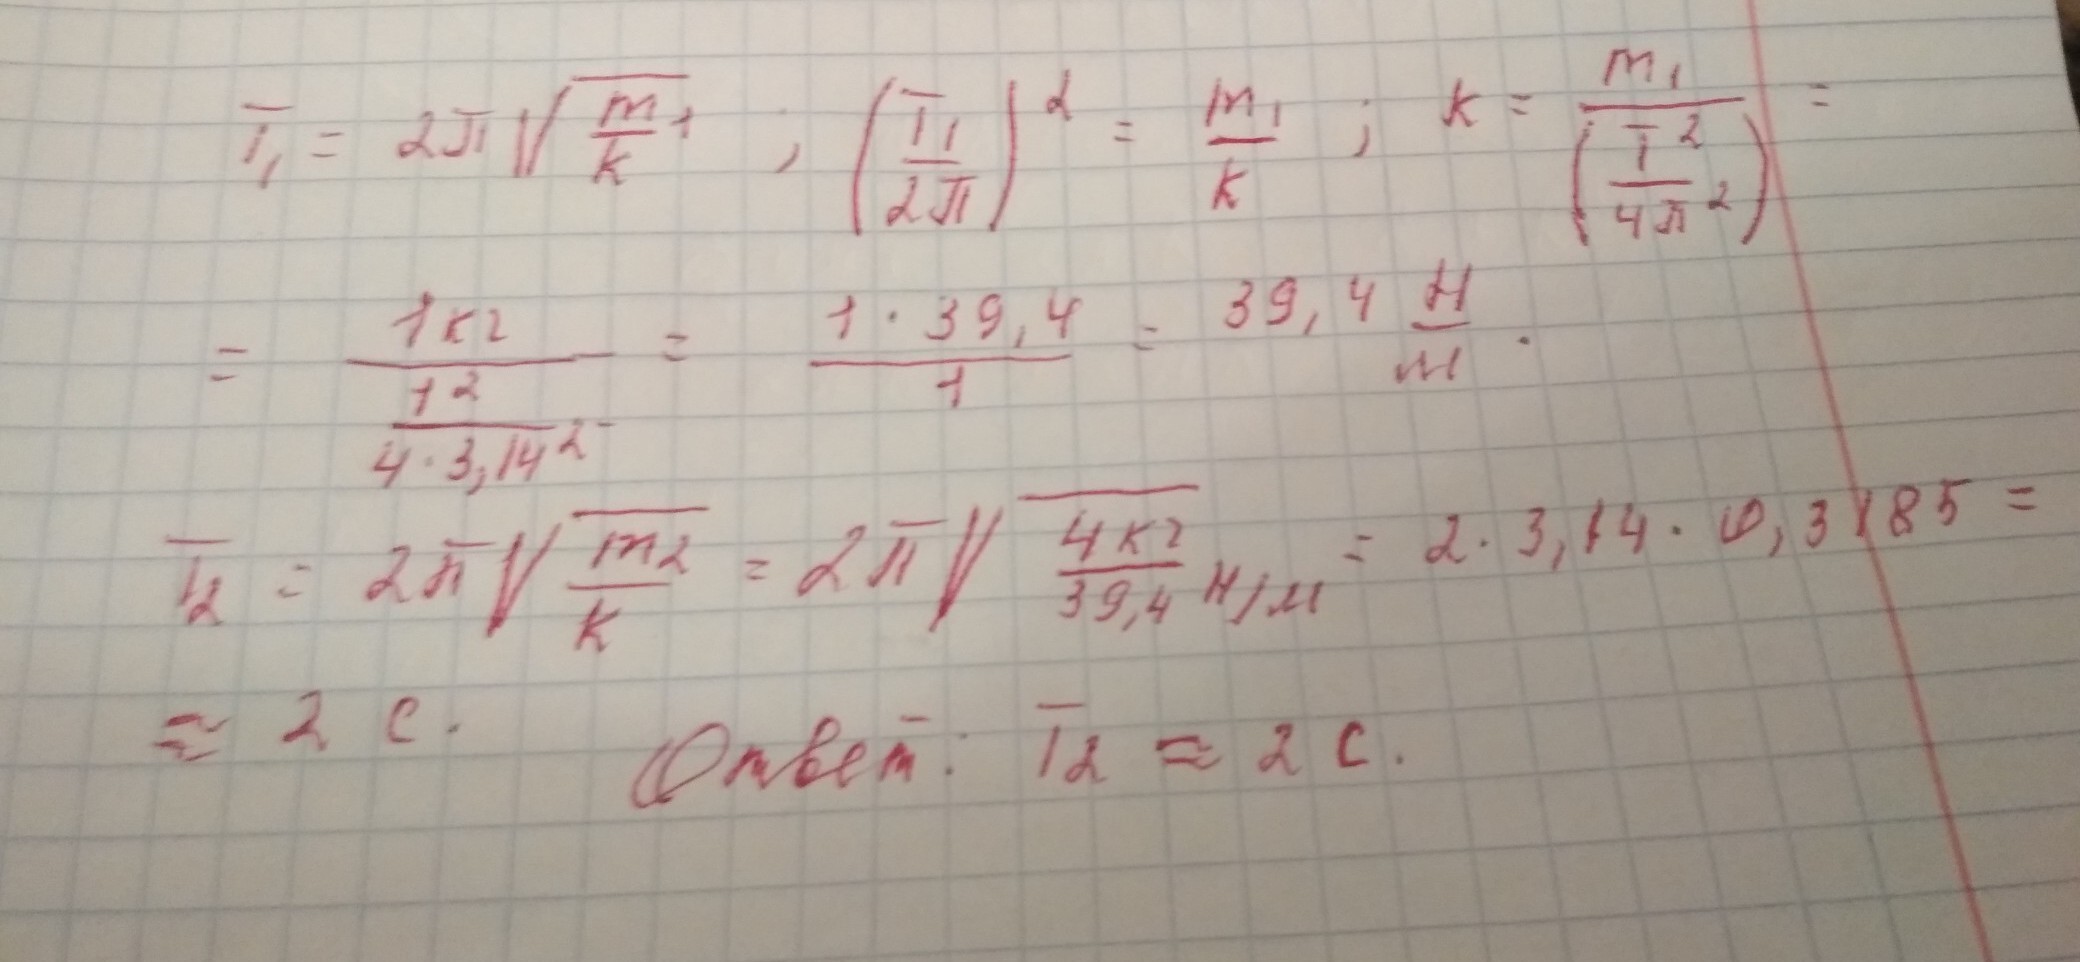 T₁ = 2π√(m₁/k) ; (T₁/2π)² = m₁/k ; k = m₁/(T²/4π²) =
= 1 кг/(1²/(4·3,14²)) = 1·39,4/1 = 39,4 Н/м.
T₂ = 2π√(m₂/k) = 2π√(4 кг/39,4 Н/м) = 2·3,14·0,3185 =
≈ 2 с. Ответ: T₂ ≈ 2 с.